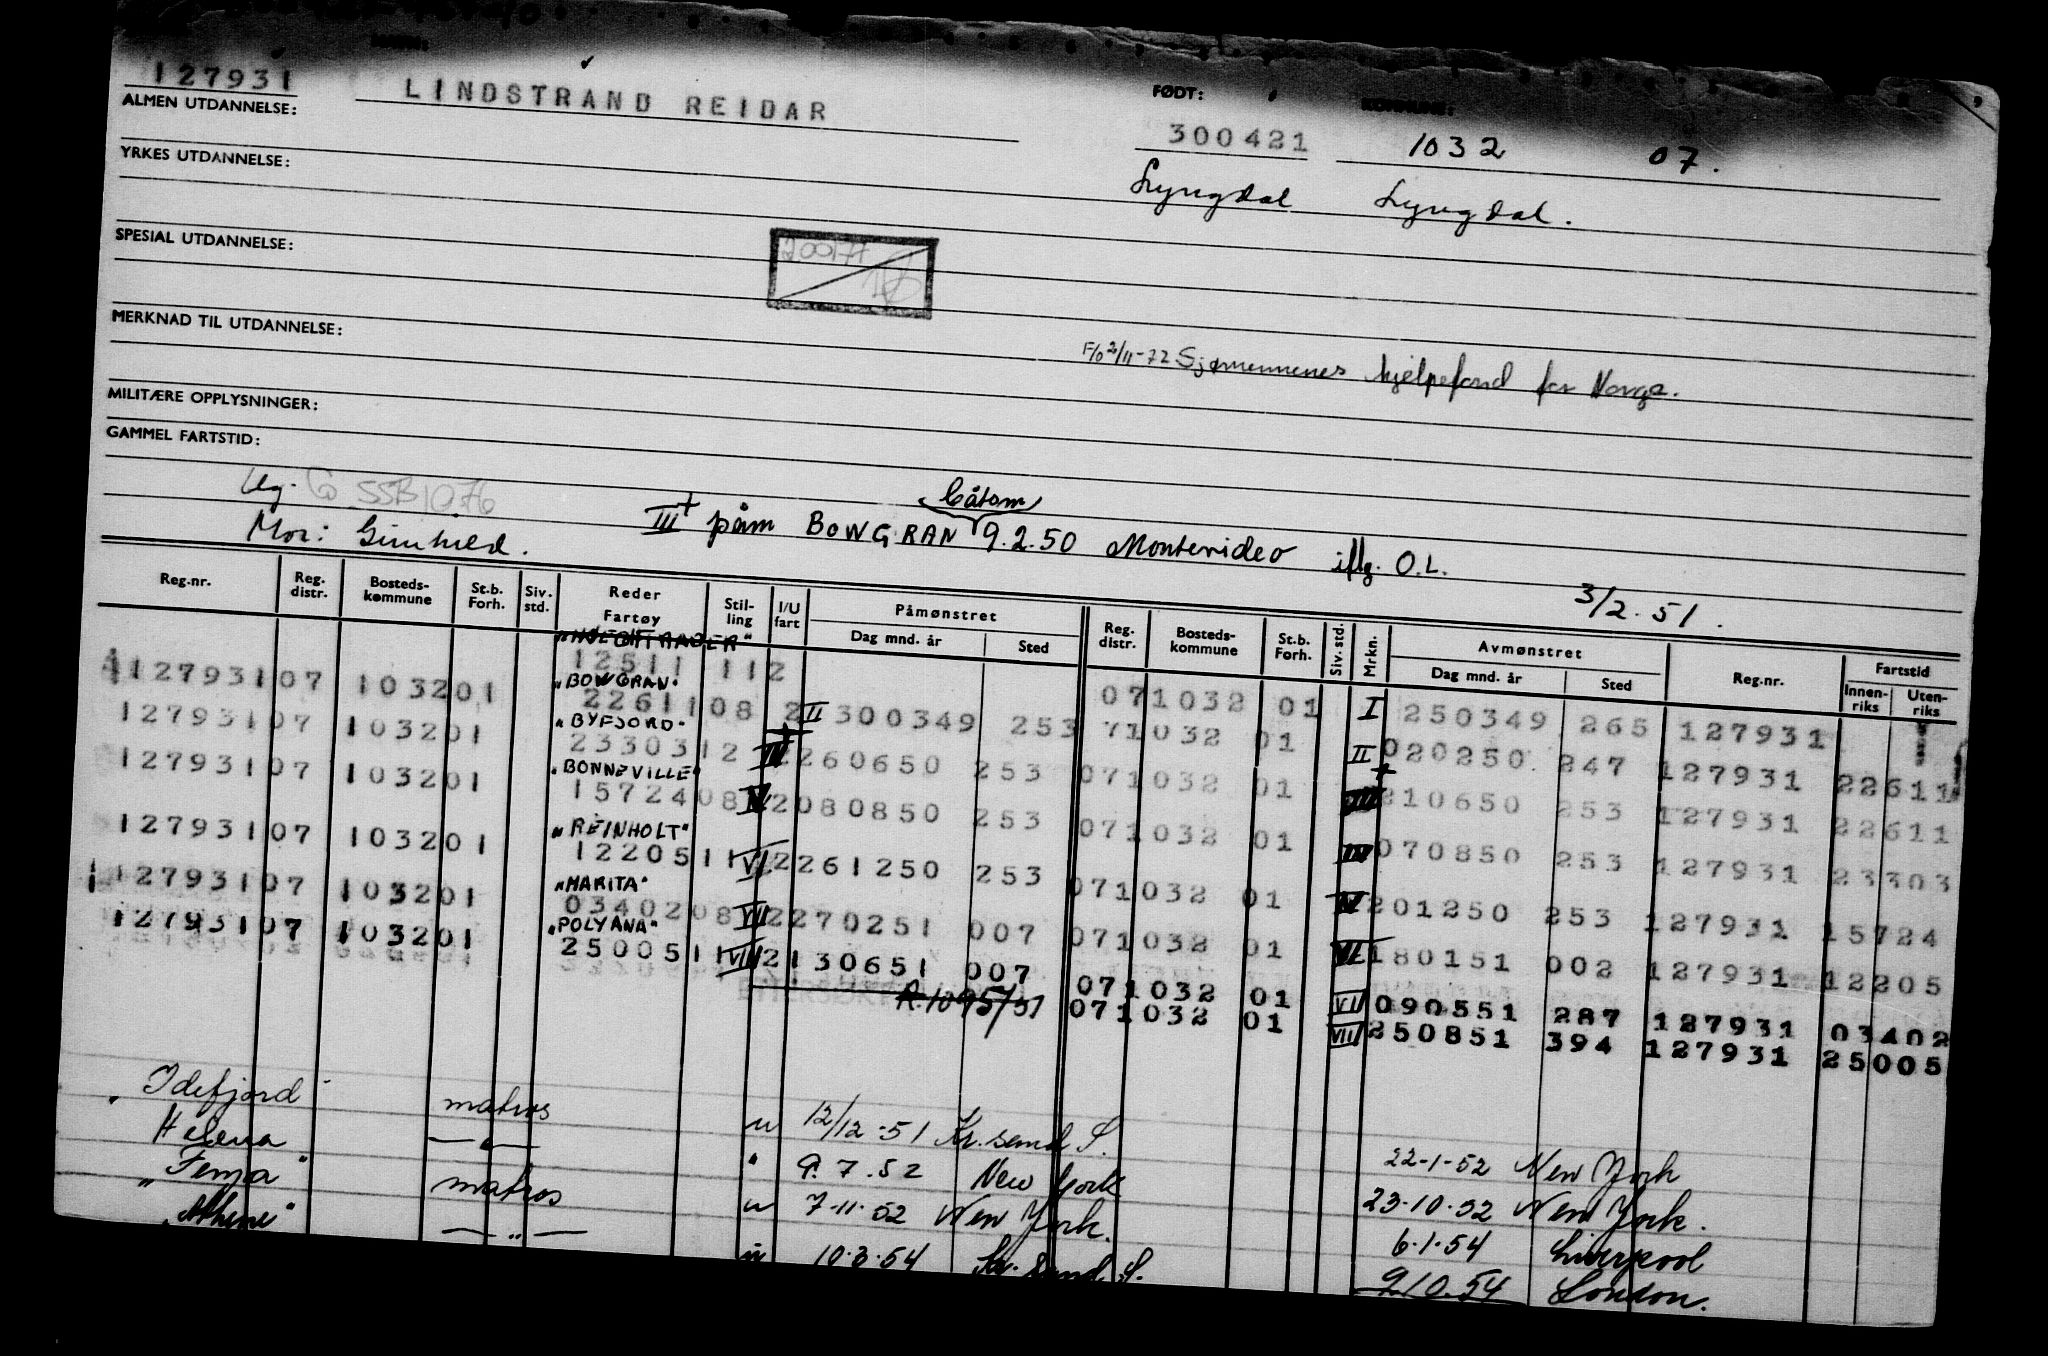 127931 LINDSTRAND REIDAR FØDT: KOMMUNE:
ALMEN UTDANNELSE: 300421 1032 07.
YRKES UTDANNELSE: Lyngdal Lyngdal.
SPESIAL UTDANNELSE: 200177
MERKNAD TIL UTDANNELSE:
F/o 2/11-72 Sjømennenes hjelpefond for Norge.
MILITÆRE OPPLYSNINGER:
GAMMEL FARTSTID:
Ug. SSB1076
båtsm
Mor: Gunhild. III+ påm BOWGRAN 9.2.50 Montevideo iflg. O.L.
3/2.51.
Reg.nr. Reg. distr. Bosteds-kommune St.b. Forh. Siv. std. Reder Fartøy Stil-ling I/U fart Påmønstret Dag mnd. år Sted Reg. distr. Bosteds-kommune St.b. Forh. Siv. std. Mrkn. Avmønstret Dag mnd. år Sted Reg.nr. Fartstid Innen-riks Uten-riks
12511 112 071032 01 I 250349 265 127931
"BOWGRAN"
127931 07 1032 01 22611 08 2 II 300349 253 71032 01 II 020250 247 127931 22611
"BYFJORD"
127931 07 1032 01 23303 12 2 260650 253 071032 01 210650 253 127931 22611
"BONNEVILLE"
127931 07 1032 01 15724 08 2 080850 253 071032 01 070850 253 127931 23303
"REINHOLT"
127931 07 1032 01 12205 11 VI 2 261250 253 071032 01 201250 253 127931 15724
"MARITA"
127931 07 1032 01 03402 08 VII 2 270251 007 071032 01 VI 180151 002 127931 12205
"POLYANA"
127931 07 1032 01 25005 11 VIII 2 130651 007 071032 01 VII 090551 287 127931 03402
R.1095/51 071032 01 VIII 250851 394 127931 25005
"Idefjord" matros u 12/12-51 Kr.sand S. 22-1-52 New York
Helena — " — " 9.7.52 New York 23-10-52 New York.
"Fenja" matros u 7-11-52 New York. 6.1.54 Liverpool
"Athene" — " — u 10.3.54 Kr.sand S. 9.10.54 London.